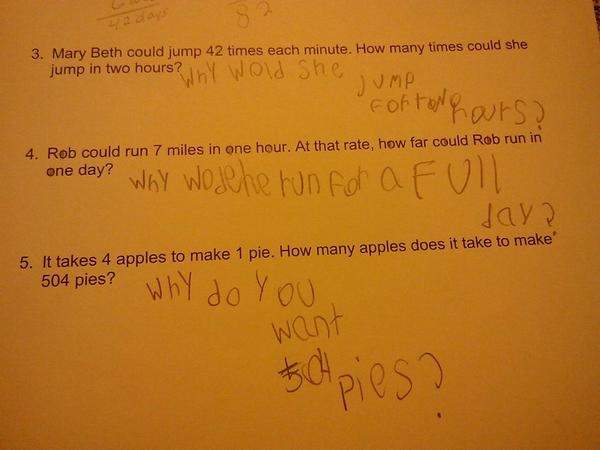 42 days
82
3. Mary Beth could jump 42 times each minute. How many times could she
jump in two hours?
Why wold she
jump
for two hours?
4. Rob could run 7 miles in one hour. At that rate, how far could Rob run in
one day?
Why wode he run for a FUll
day?
5. It takes 4 apples to make 1 pie. How many apples does it take to make
504 pies?
Why do You
want
504 pies?